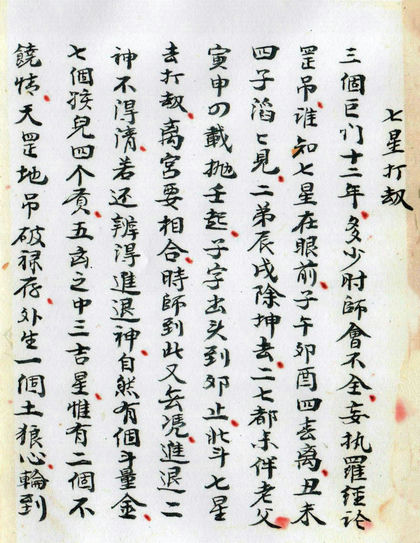 七星打劫
三個巨门十二年多少时師會不全妄执羅經论
罡吊谁知七星在眼前子午夘酉四去離丑未
四子滔匕見二弟辰戌除抻去二七都未伴老父
寅申の載抛壬起子字出头到夘止北斗七星
去打劫離宮要相合時師到此又去凴進退二
神不得清若还辨得進退神自然有個斗量金
七個孩兒四个貢五离之中三吉星惟有二個不
饒情天罡地吊破禄存外生一個土狼心輪到